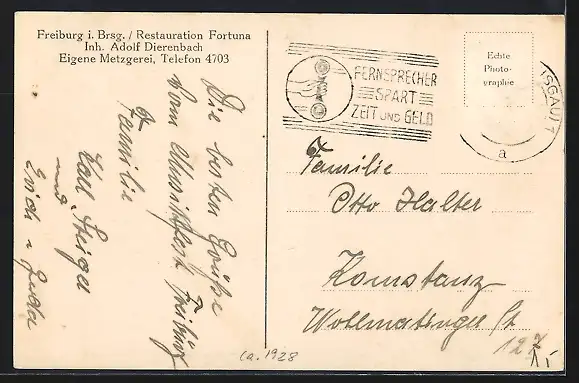 Freiburg i. Brsg. / Restauration Fortuna
Inh. Adolf Dierenbach
Eigene Metzgerei, Telefon 4703
Die besten Grüße
vom Musikfest Freiburg
Familie
Karl
und
FERNSPRECHER
SPART
ZEIT UND GELD
Echte
Photo-
graphie
ISGAU) 1
a
Familie
Otto Halter
Konstanz
Wollmatinger St
127
ca. 1928